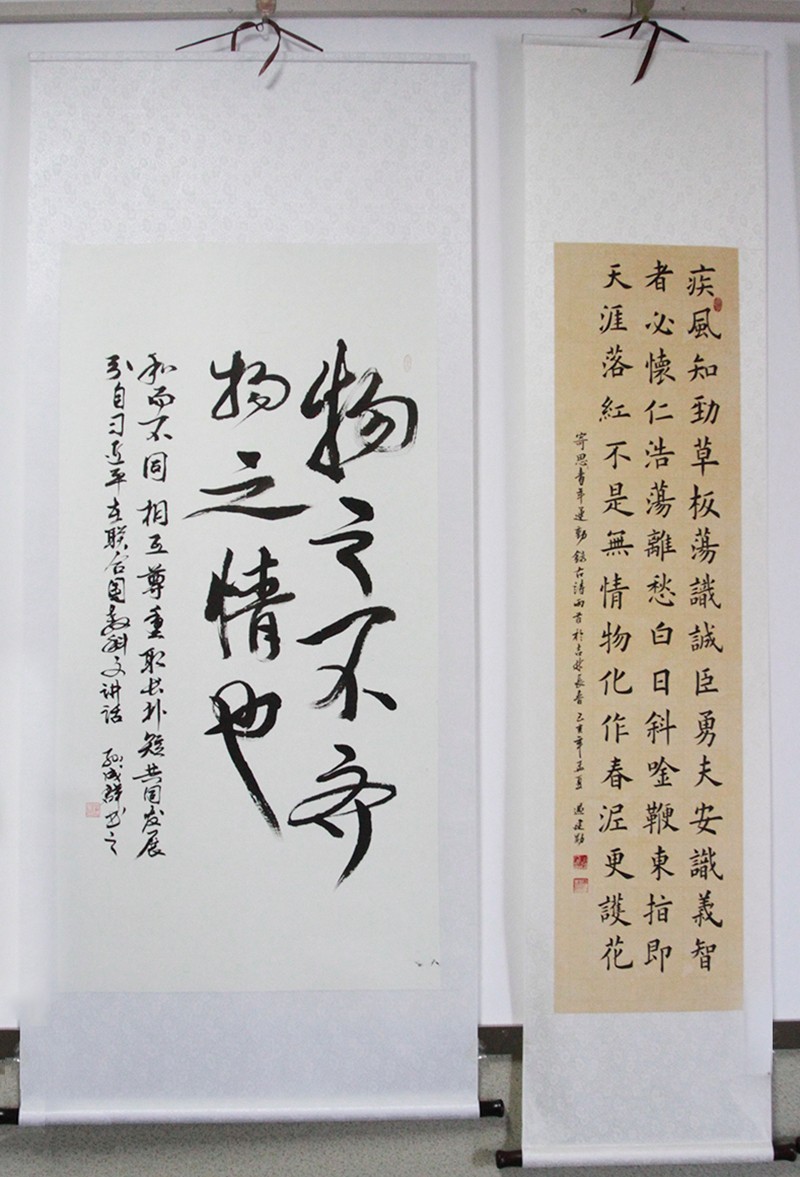 疾風知勁草板蕩識誠臣勇夫安識義智
者必懷仁浩蕩離愁白日斜唫鞭東指即
天涯落紅不是無情物化作春泥更護花
寄思青年運動 錄古詩兩首於吉林長春 己亥年孟夏
物之不齐
物之情也
和而不同 相互尊重 取长补短 共同发展
引自习近平在联合国教科文讲话 书之